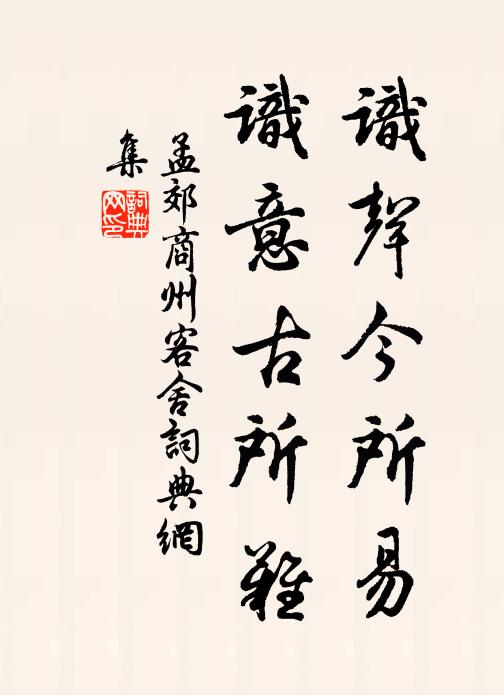 識聲今所易
識意古所難
孟郊商州客舍詞典網
集
詞典
网印